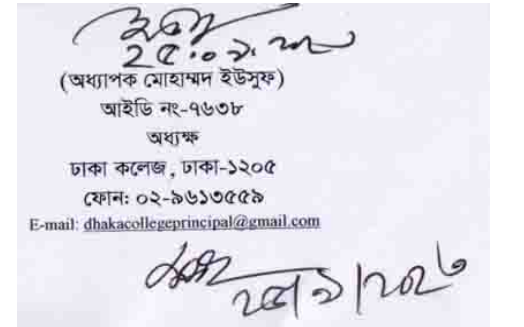 ২৫.০৯.২০২৩
(অধ্যাপক মোহাম্মদ ইউসুফ)
আইডি নং-৭৬৩৮
অধ্যক্ষ
ঢাকা কলেজ, ঢাকা-১২০৫
ফোন: ০২-৯৬১৩৫৫৯
E-mail: dhakacollegeprincipal@gmail.com
২৫/৯/২০২৩